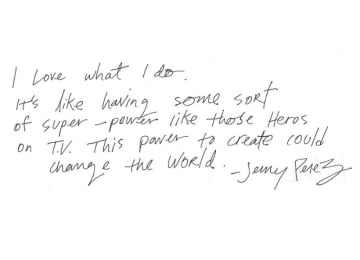 I Love what I do.
It's like having some sort
of super-power like those Heros
on T.V. This power to create could
change the world. - Jemy Perez